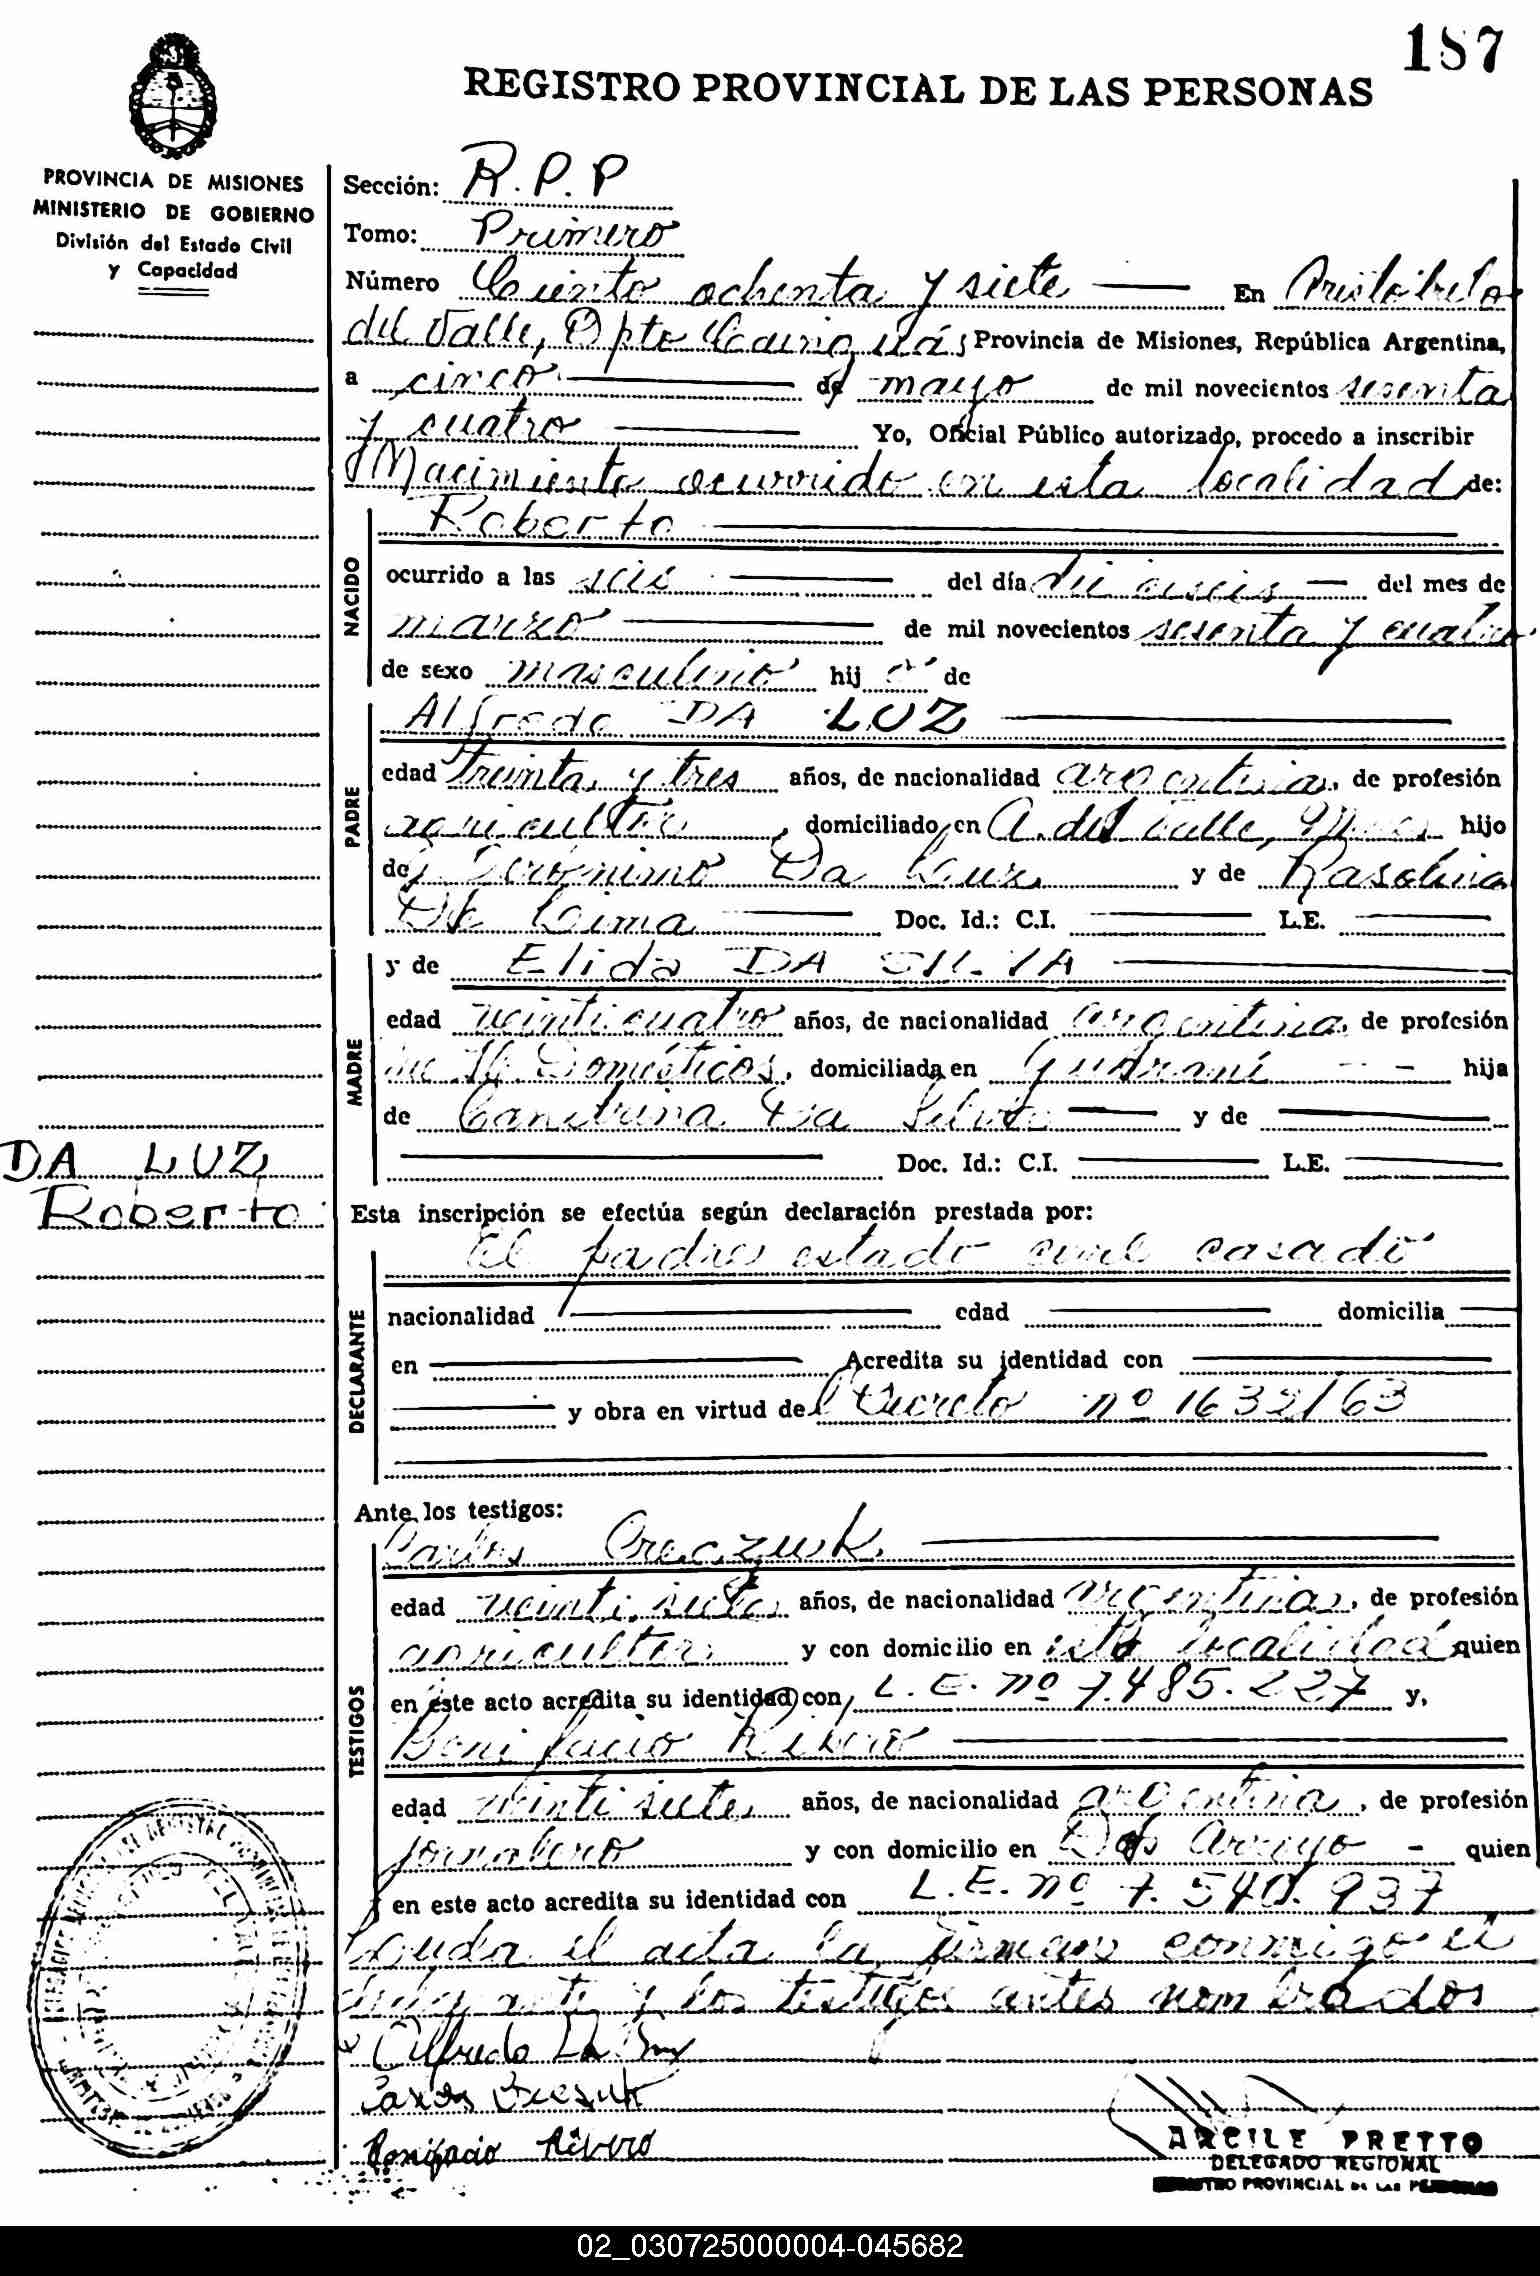 187
REGISTRO PROVINCIAL DE LAS PERSONAS
PROVINCIA DE MISIONES
MINISTERIO DE GOBIERNO
División del Estado Civil
y Capacidad
Sección: R.P.P
Tomo: Primero
Número Ciento ochenta y siete En Aristóbulo
del Valle, Dpto Cainguás Provincia de Misiones, República Argentina,
a cinco de mayo de mil novecientos sesenta
y cuatro Yo, Oficial Público autorizado, procedo a inscribir
Nacimiento ocurrido en esta localidad de:
NACIDO
Roberto
ocurrido a las seis del día dieciseis del mes de
marzo de mil novecientos sesenta y cuatro
de sexo masculino hijo de
PADRE
Alfredo DA LUZ
edad treinta y tres años, de nacionalidad argentina, de profesión
agricultor, domiciliado en A. del Valle, Mnes hijo
de Gerónimo Da Luz y de Rasolina
De Lima Doc. Id.: C.I. L.E.
MADRE
y de Elida DA SILVA
edad veinticuatro años, de nacionalidad argentina, de profesión
Domésticos, domiciliada en Guaraní - - hija
de Da Silva y de
Doc. Id.: C.I. L.E.
DA LUZ
Roberto
Esta inscripción se efectúa según declaración prestada por:
DECLARANTE
El padre estado civil casado
nacionalidad edad domicilia
en Acredita su identidad con
y obra en virtud del Decreto nº 1632/63
Ante los testigos:
TESTIGOS
Carlos
edad veintisiete años, de nacionalidad argentina, de profesión
agricultor y con domicilio en esta localidad quien
en este acto acredita su identidad con L.E. nº 7.485.227 y,
Bonifacio Rivero
edad veintisiete años, de nacionalidad argentina, de profesión
jornalero y con domicilio en Dos Arroyo - quien
en este acto acredita su identidad con L.E. nº 7.540.937
Leida el acta la firman conmigo el
y los testigos antes nombrados
Alfredo Da Luz
Carlos
Bonifacio Rivero
ARCILE PRETTO
DELEGADO REGIONAL
REGISTRO PROVINCIAL DE LAS PERSONAS
02_030725000004-045682